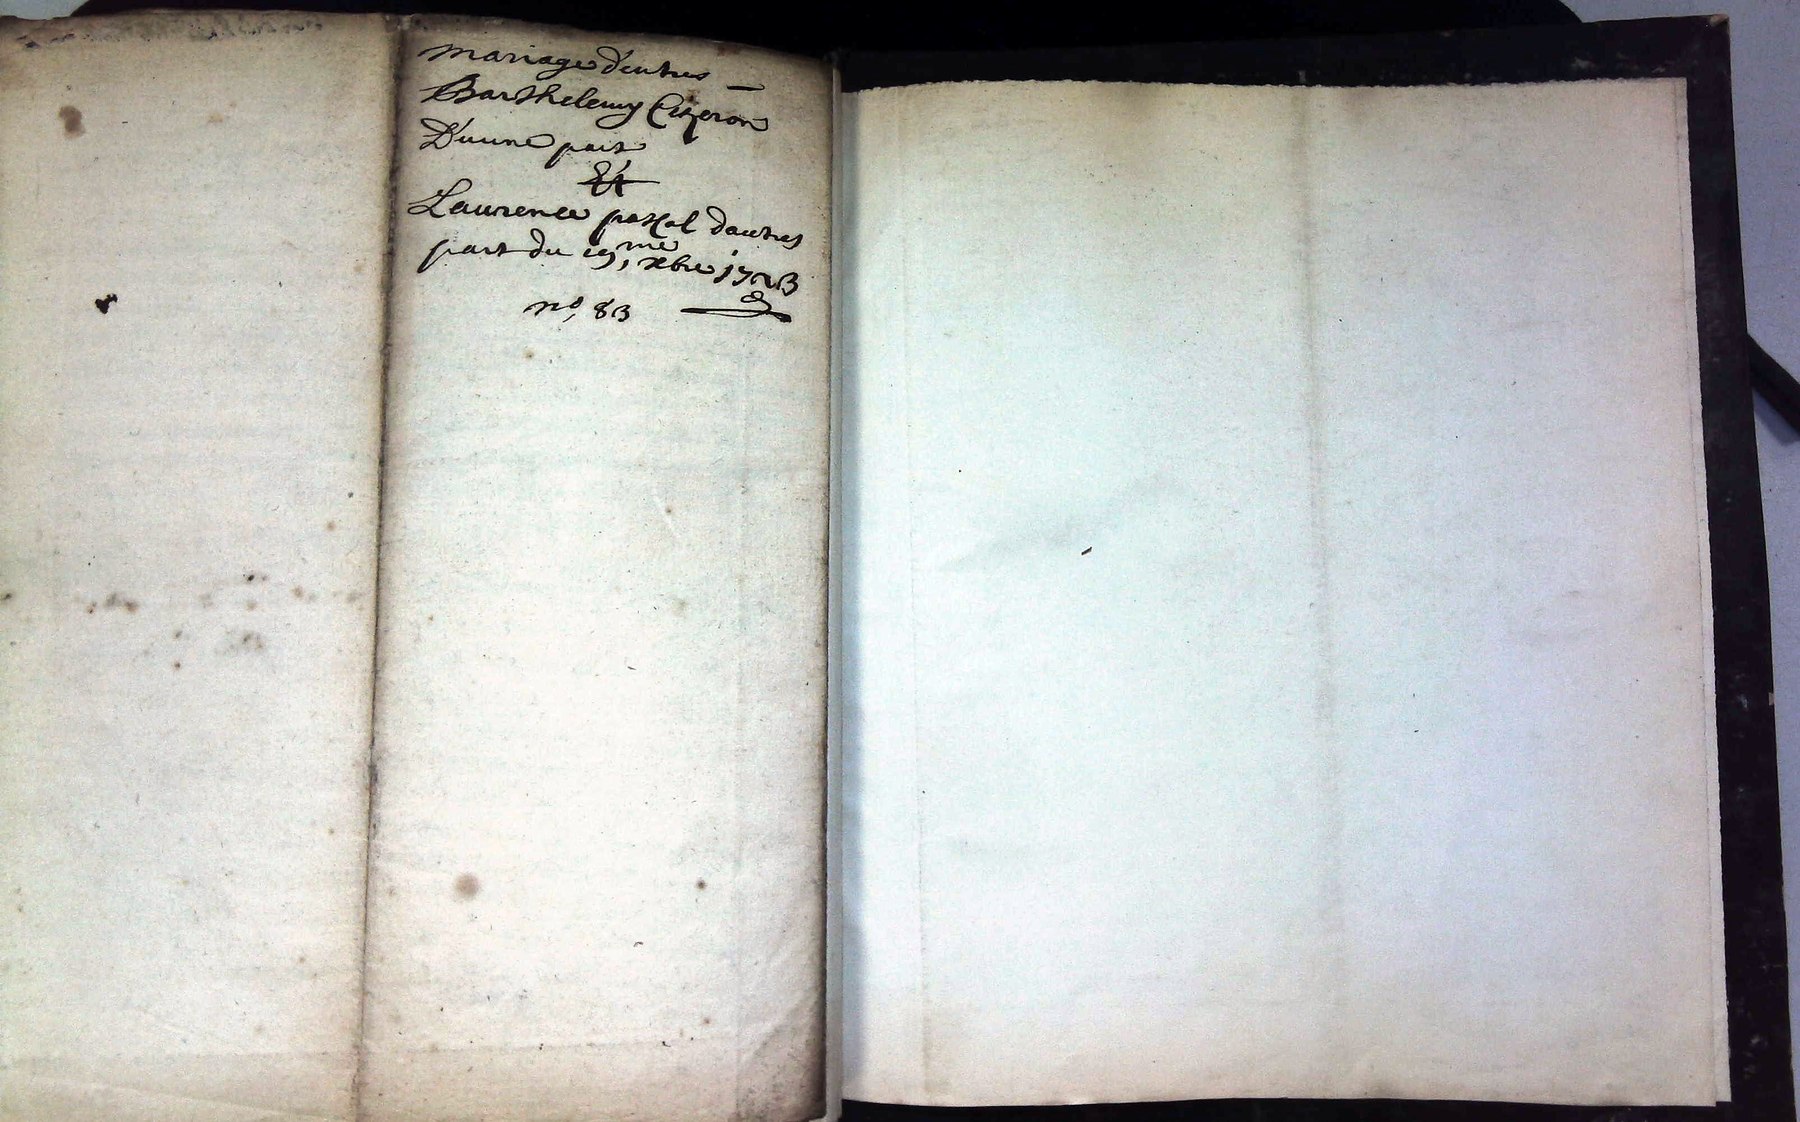 mariage d'entres
Barthelemy Cizeron
D'uune part
Et
Laurence pascal dautres
part du 19,me xbre 1723
no, 83